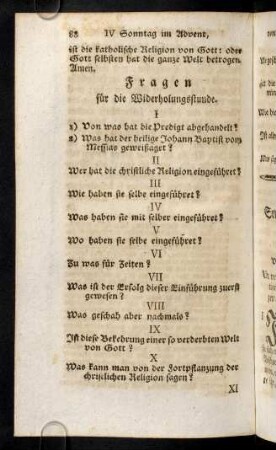 88 IV Sonntag im Advent,
ist die katholische Religion von Gott: oder
Gott selbsten hat die ganze Welt betrogen.
Amen.
Fragen
für die Widerholungsstunde.
I
1) Von was hat die Predigt abgehandelt?
2) Was hat der heilige Johann Baptist vom
Messias geweissaget?
II
Wer hat die christliche Religion eingeführet?
III
Wie haben sie selbe eingeführet?
IV
Was haben sie mit selber eingeführet?
V
Wo haben sie selbe eingeführet?
VI
Zu was für Zeiten?
VII
Was ist der Erfolg dieser Einführung zuerst
gewesen?
VIII
Was geschah aber nachmals?
IX
Ist diese Bekehrung einer so verderbten Welt
von Gott?
X
Was kann man von der Fortpflanzung der
christlichen Religion sagen?
XI